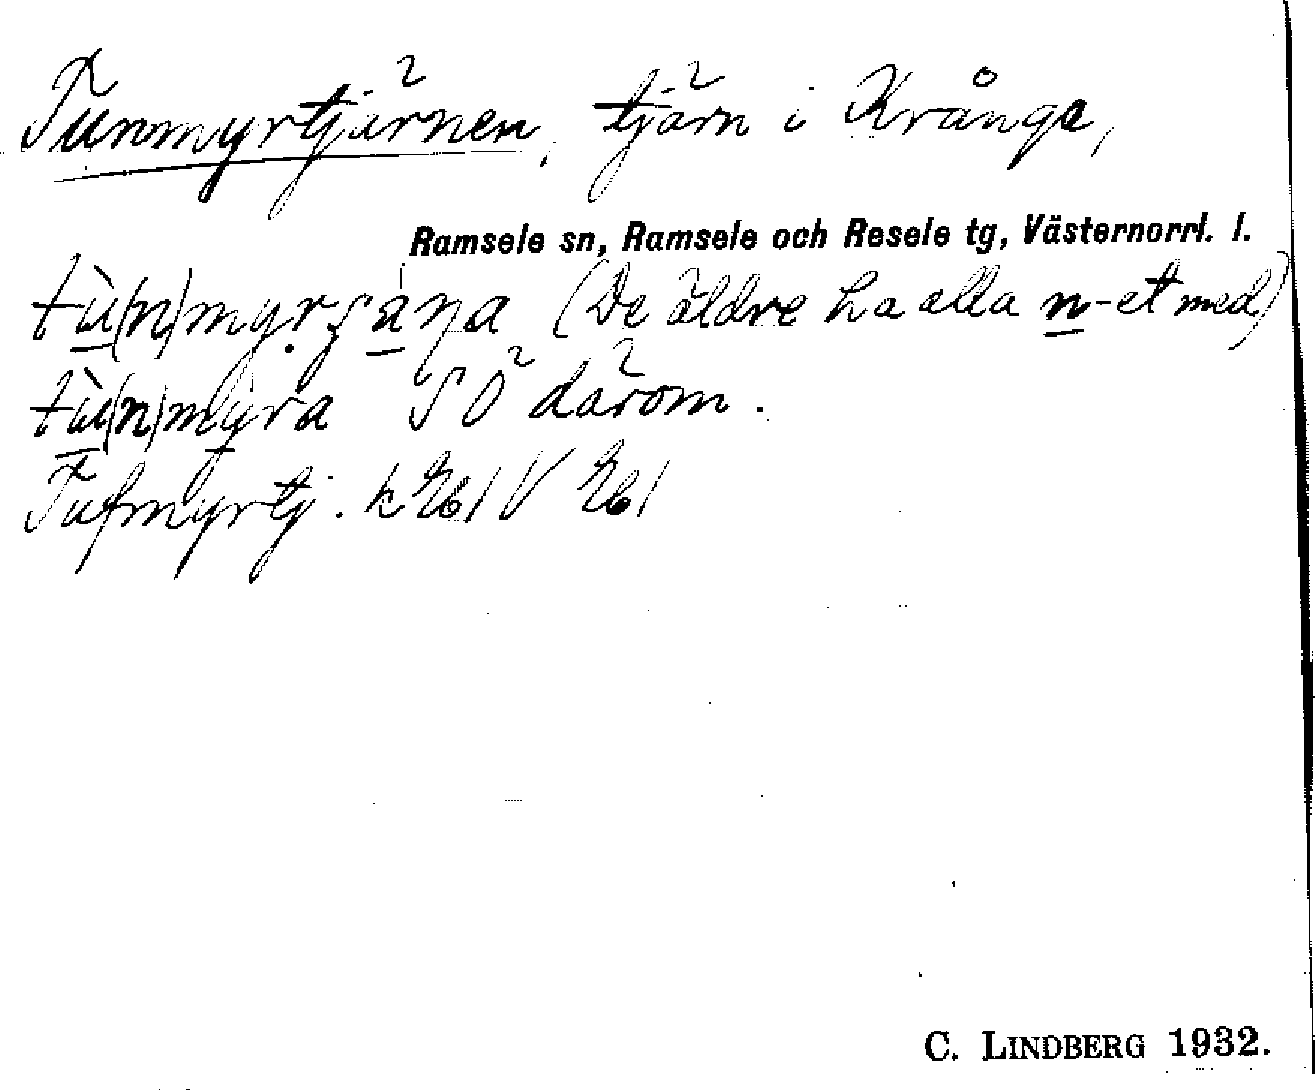 Tunmyrtjärnen, tjärn i Krånge,
Ramsele sn, Ramsele och Resele tg, Västernorrl. l.
tù(n)myrṣa̱ŋa (De äldre ha alla n-et med)
tù(n)my̱ra SÖ därom.
Tufmyrtj. k
C. LINDBERG 1932.